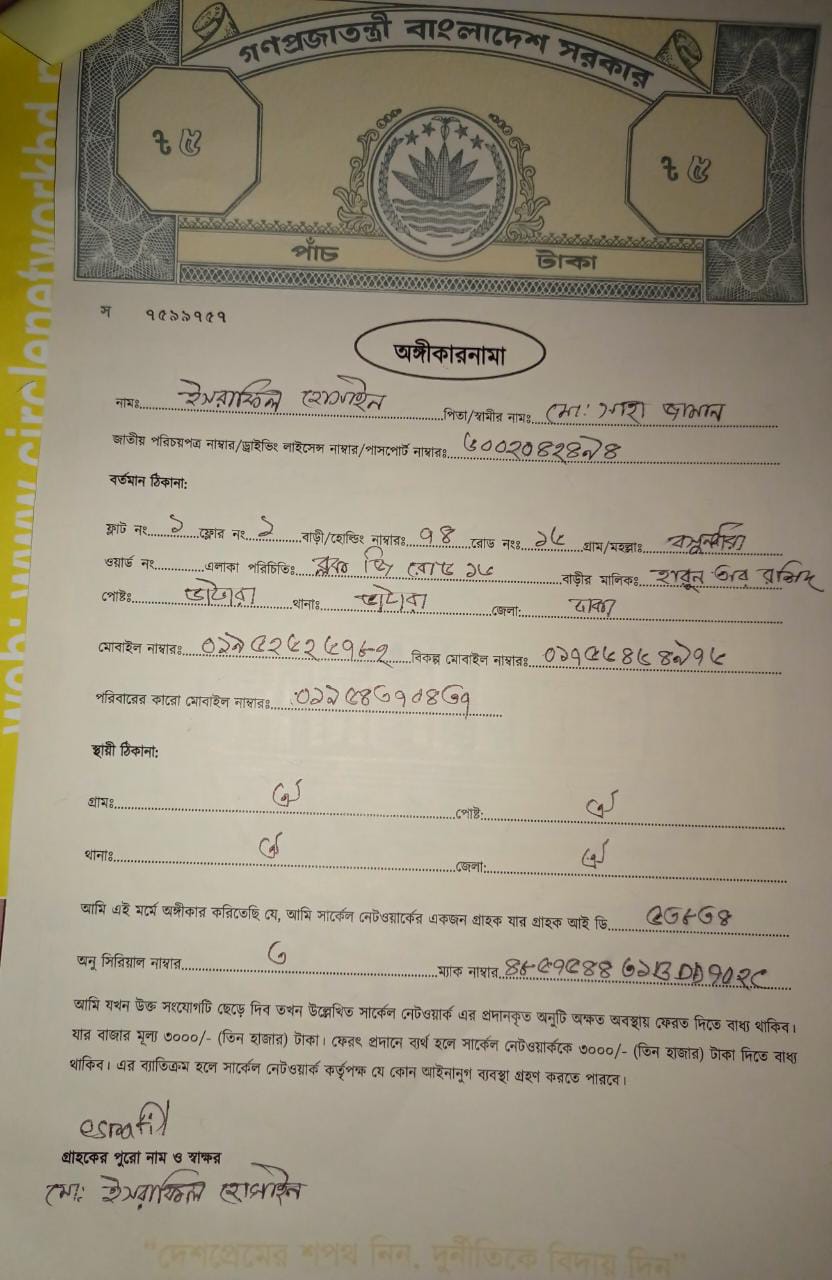 web: www.circlenetworkbd.n
গণপ্রজাতন্ত্রী বাংলাদেশ সরকার
৳ ৫ ৳ ৫
পাঁচ টাকা
স ৭৫৯৯৭৫৭
অঙ্গীকারনামা
নামঃ ইসরাফিল হোসাইন পিতা/স্বামীর নামঃ মো: সাহা জামান
জাতীয় পরিচয়পত্র নাম্বার/ড্রাইভিং লাইসেন্স নাম্বার/পাসপোর্ট নাম্বারঃ ৬০০২০৪২৪৯৪
বর্তমান ঠিকানা:
ফ্লাট নং ১ ফ্লোর নং ১ বাড়ী/হোল্ডিং নাম্বারঃ ৭৪ রোড নংঃ ১৬ গ্রাম/মহল্লাঃ বসুন্ধরা
ওয়ার্ড নং এলাকা পরিচিতিঃ ব্লক জি রোড ১৬ বাড়ীর মালিকঃ হারুন অর রশিদ
পোষ্টঃ ভাটারা থানাঃ ভাটারা জেলা: ঢাকা
মোবাইল নাম্বারঃ বিকল্প মোবাইল নাম্বারঃ
পরিবারের কারো মোবাইল নাম্বারঃ
স্থায়ী ঠিকানা:
গ্রামঃ ঐ পোষ্ট: ঐ
থানাঃ ঐ জেলা: ঐ
আমি এই মর্মে অঙ্গীকার করিতেছি যে, আমি সার্কেল নেটওয়ার্কের একজন গ্রাহক যার গ্রাহক আই ডি ৫৩৮৩৪
অনু সিরিয়াল নাম্বার ম্যাক নাম্বার
আমি যখন উক্ত সংযোগটি ছেড়ে দিব তখন উল্লেখিত সার্কেল নেটওয়ার্ক এর প্রদানকৃত অনুটি অক্ষত অবস্থায় ফেরত দিতে বাধ্য থাকিব।
যার বাজার মূল্য ৩০০০/- (তিন হাজার) টাকা। ফেরৎ প্রদানে ব্যর্থ হলে সার্কেল নেটওয়ার্ককে ৩০০০/- (তিন হাজার) টাকা দিতে বাধ্য
থাকিব। এর ব্যাতিক্রম হলে সার্কেল নেটওয়ার্ক কর্তৃপক্ষ যে কোন আইনানুগ ব্যবস্থা গ্রহণ করতে পারবে।
esrafil
গ্রাহকের পুরো নাম ও স্বাক্ষর
মো: ইসরাফিল হোসাইন
“দেশপ্রেমের শপথ নিন, দুর্নীতিকে বিদায় দিন”